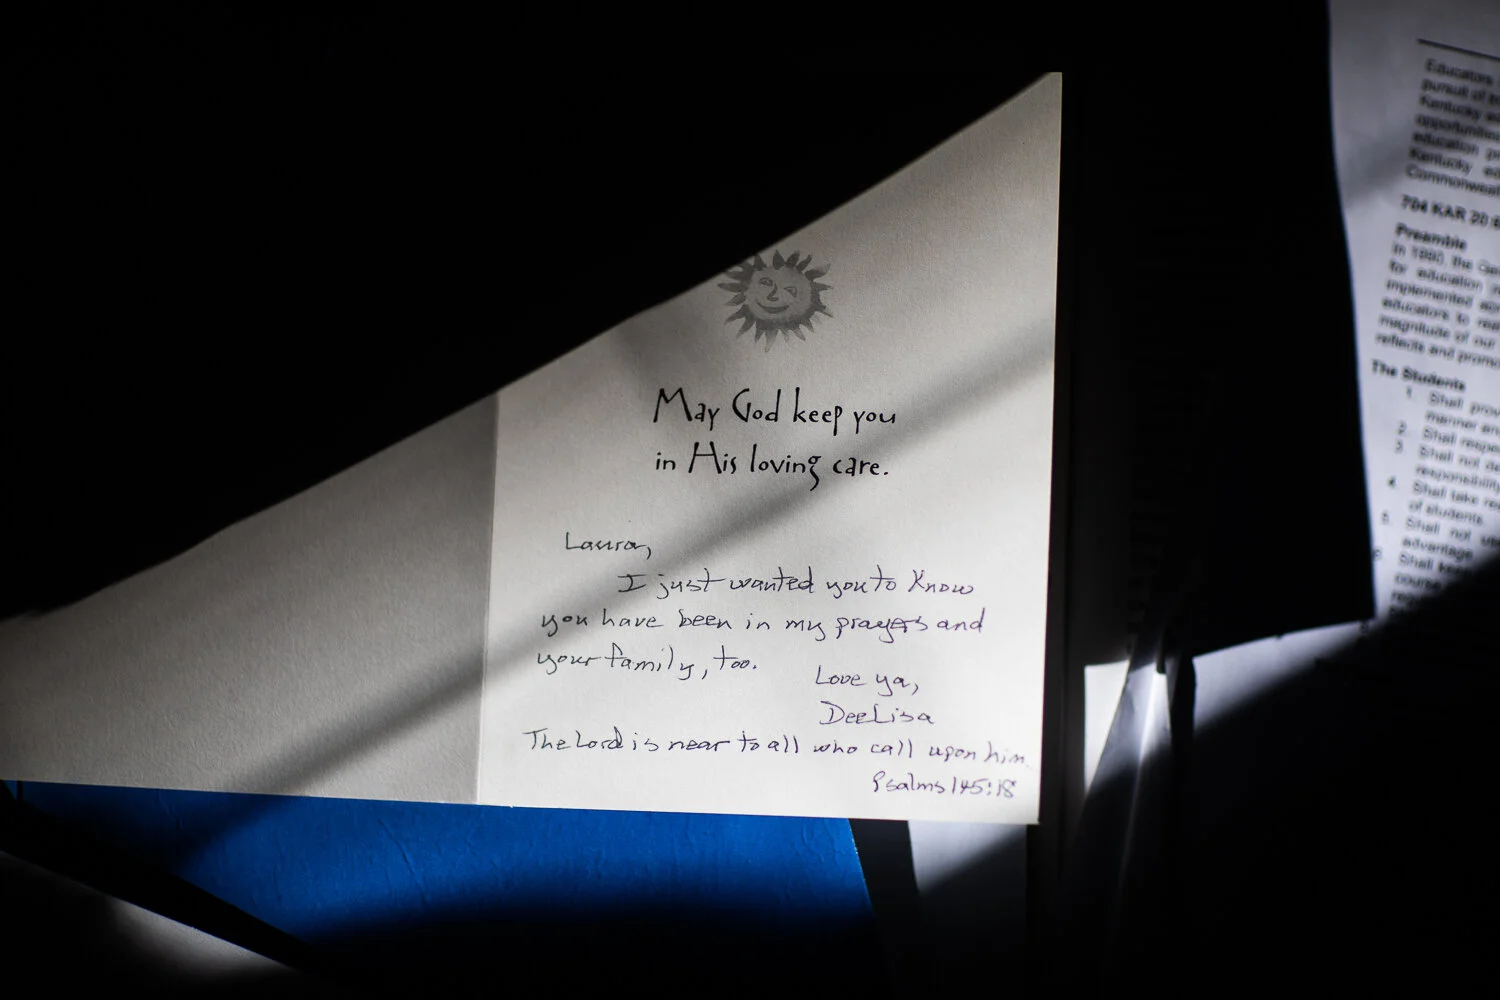 May God keep you
in His loving care.
Laura,
I just wanted you to know
you have been in my prayers and
your family, too.
Love ya,
DeeLisa
The Lord is near to all who call upon him.
Psalms 145:18
Educators
pursuit of
Kentucky
opportunities
education
Kentucky
Commonwealth
704 KAR 20:
Preamble
In 1990, the
for education
implemented
educators to
magnitude of our
reflects and
The Students
1. Shall
manner
2. Shall
3. Shall not
responsibility
4. Shall take
of students.
5. Shall not
advantage
6. Shall
course